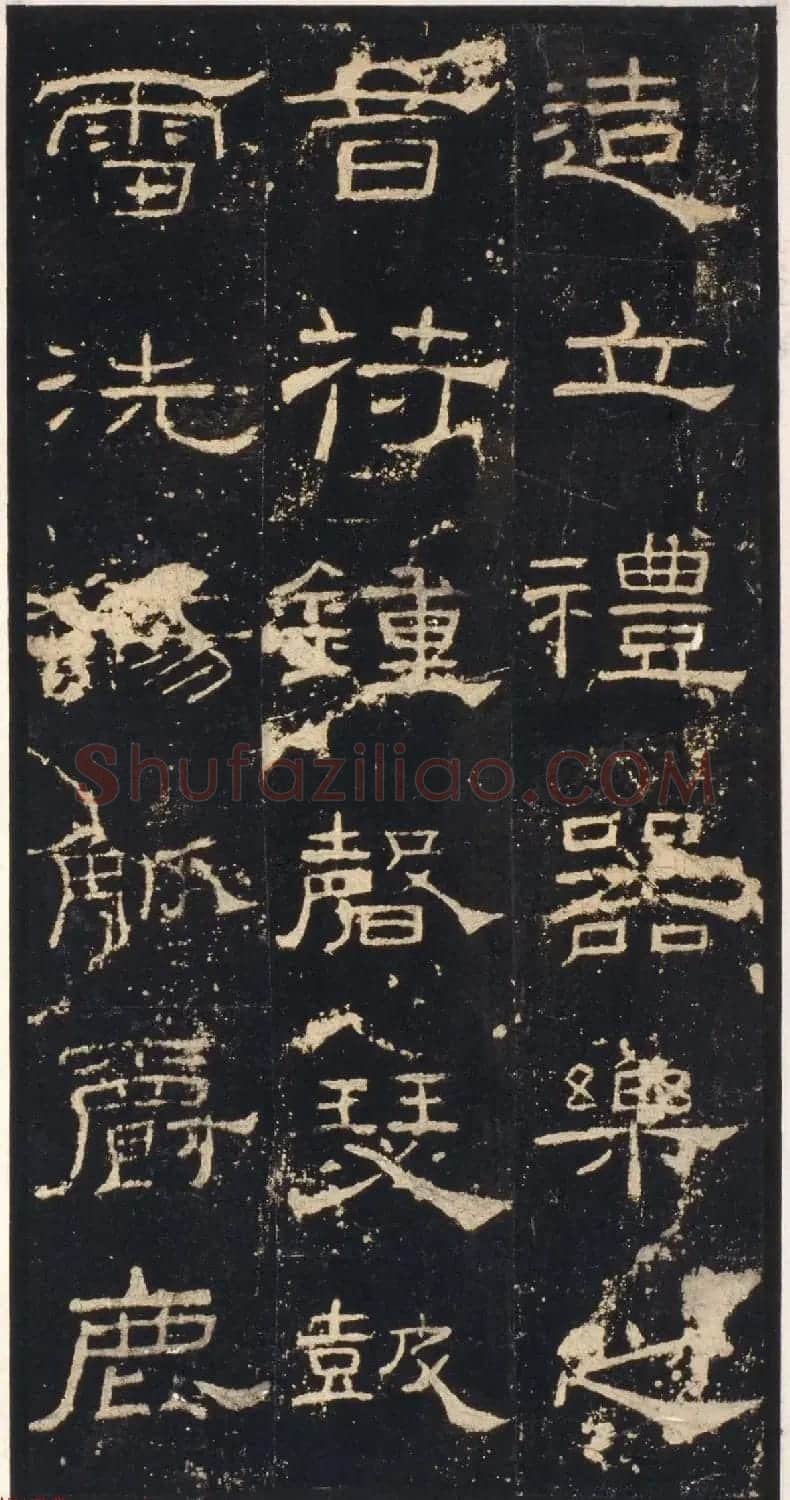 造立禮器樂之
音苻鍾磬瑟鼓
雷洗觴觚爵鹿
Shufaziliao.COM